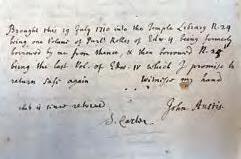 Brought this 19 July 1710 into the Temple Library N.24
being one Volume of Parlt Rolles of Edw. 4 being formerly
borrowed by me from thence, & then borrowed N.25
being the last Vol. of Edw. IV which I promise to
return safe again Witness my hand
John Austis
since retur'd
S. Carter